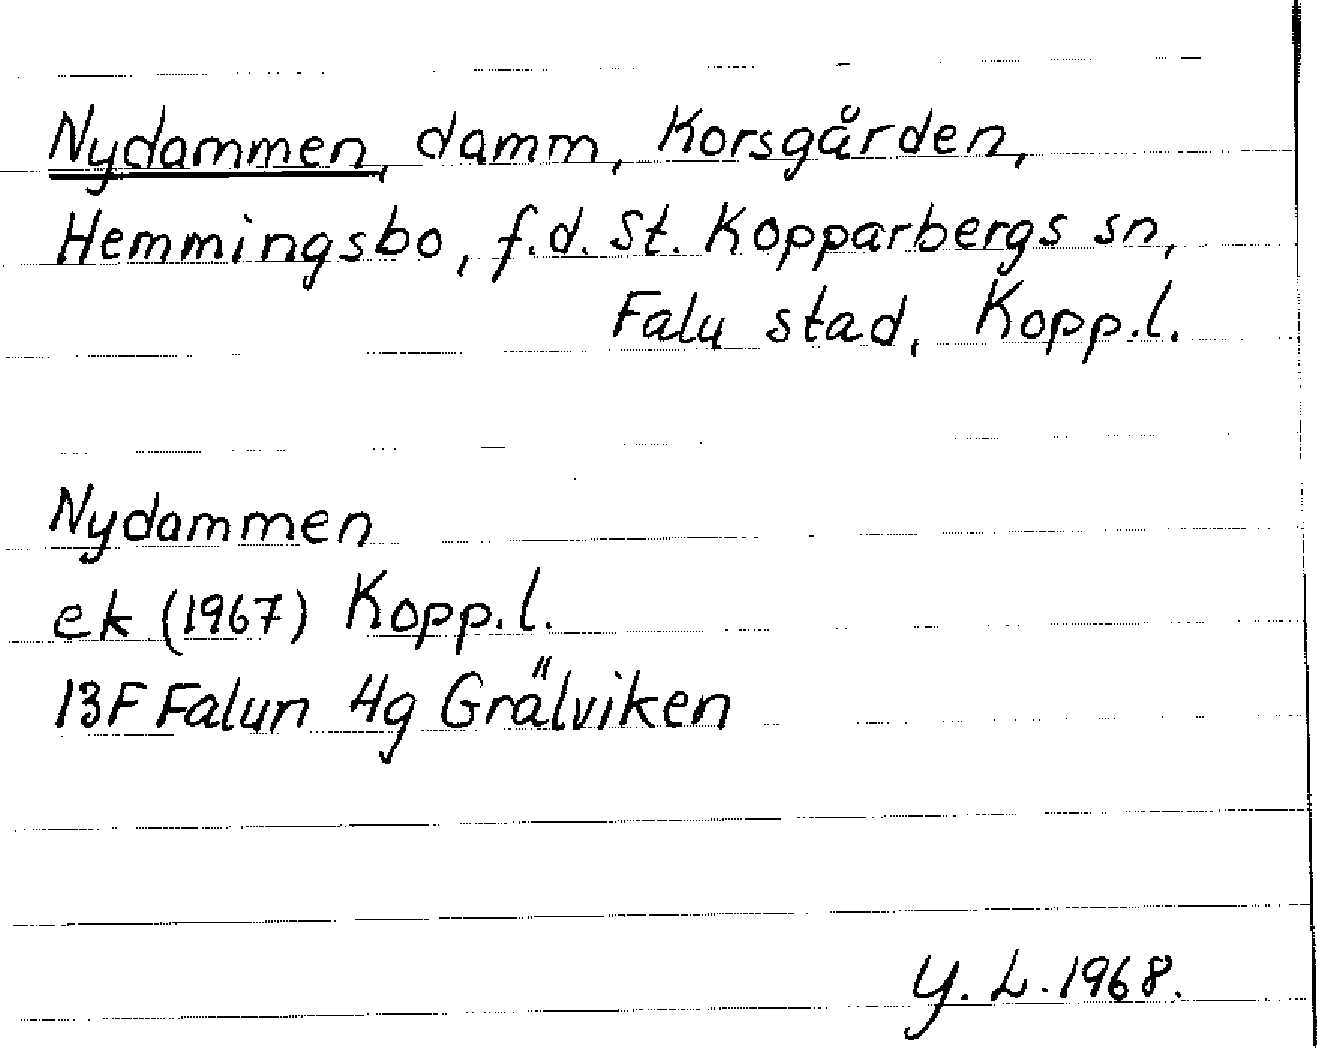 Nydammen, damm, Korsgården,
Hemmingsbo, f.d. St. Kopparbergs sn,
Falu stad, Kopp.l.
Nydammen
ek (1967) Kopp.l.
13F Falun 4g Grälviken
Y. L. 1968.